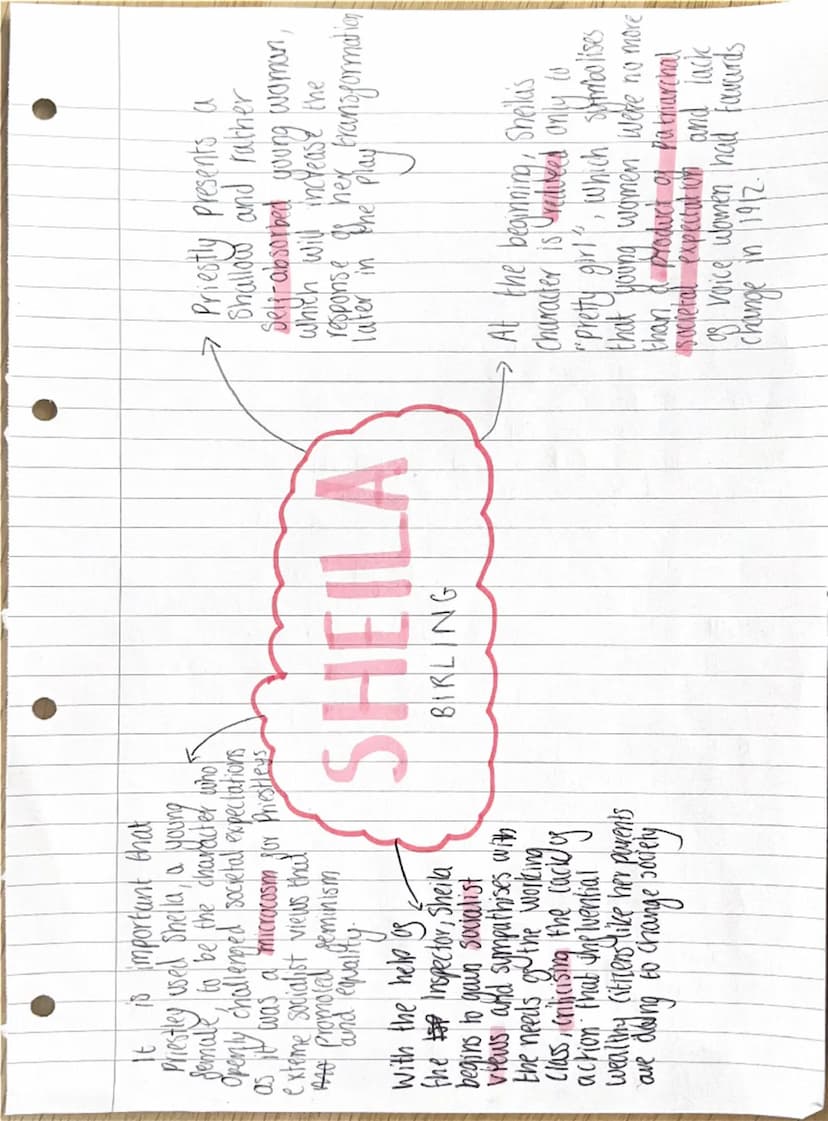 It is important that
Priestley used Sheila, a young
female, to be the character who
openly challenged societal expectations
as it was a microcosm for Priestleys
exteme socialist views that
promoted feminism
and equality.
Priestly presents a
shallow and rather
self-absorbed young woman,
which will increase the
response of her transformation
later in the play
SHEILA
BIRLING
with the help of
the Inspector, Sheila
begins to gain socialist
views and sympathises with
the needs of the working
class, criticising the lack of
action that influential
wealthy citizens like her parents
are doing to change society
At the beginning, Sheilas
character is only to
"pretty girl", which symbolises
that young women were no more
than a product of patriarchal
societal expectation and lack
of voice women had towards
change in 1912.